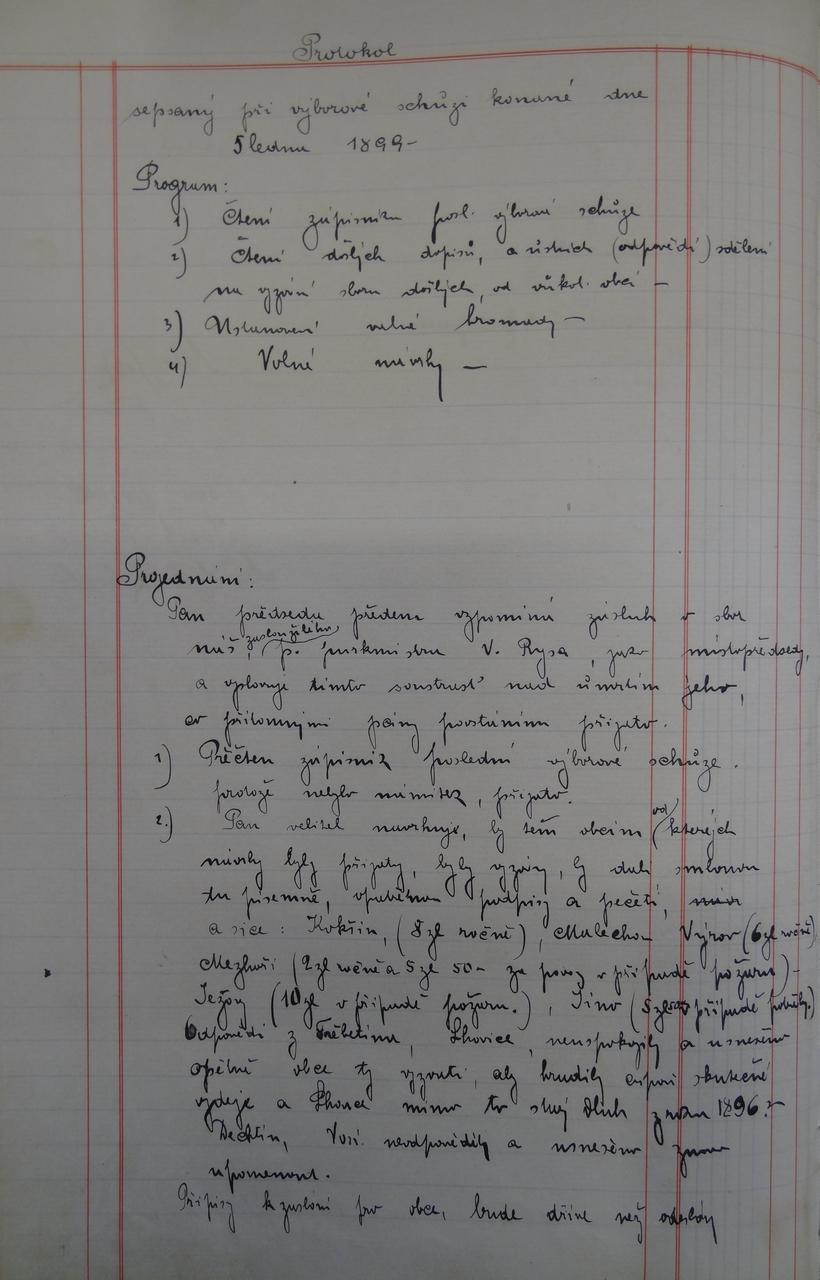 Protokol
sepsaný při výborové schůzi konané dne
5 ledna 1899 -
Program:
1) Čtení zápisníku posl. výborové schůze
2) Čtení došlých dopisů, a ústních (odpovědí) sdělení
na vyzvání sboru došlých, od okol. obcí -
3) Ustanovení valné hromady -
4) Volné návrhy -
Projednání:
Pan předseda předem vzpomíná zásluh o sbor
náš, zasloužilého p. purkmistra V. Rysa, jako místopředsedy,
a vyslovuje tímto soustrasť nad úmrtím jeho,
což přítomnými pány povstáním přijato.
1) Přečten zápisník poslední výborové schůze.
protože nebylo námitek, přijato.
2.) Pan velitel navrhuje, by těm obcím od kterých
návrhy byly přijaty, byly vyzvány, by dali smlouvu
tu písemně, opatřenou podpisy a pečetí,
a sice: Kokšín, (8 zl ročně), Malechov Výrov (6 zl ročně)
Mezhoří (2 zl ročně a 5 zl 50 - za povoz v případě požáru) -
Ježovy (10 zl v případě požáru.), Jíno (5 zl v případě potřeby.)
Odpovědi z Třebětína, Lhovice, neuspokojily a usneseno
opětně obce ty vyzvati, aby hradily aspoň skutečné
výdeje a Lhovice mimo to svůj dluh z roku 1896. -
Dehtín, Vosí. neodpověděly a usneseno znovu
upomenout.
Přípisy k zaslání pro obce, bude dříve než odeslány